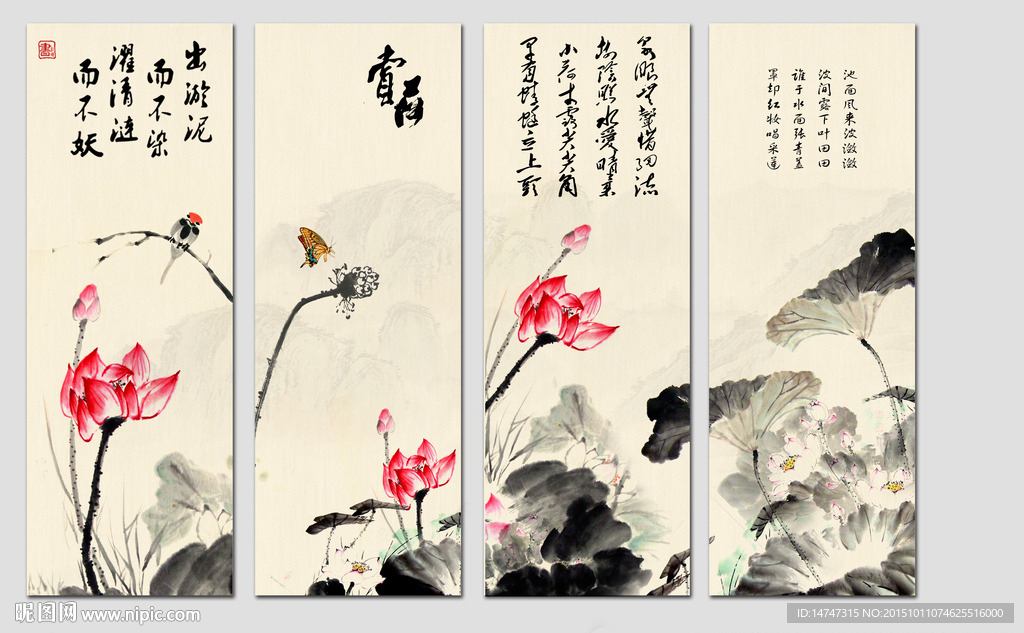 出淤泥
而不染
濯清漣
而不妖
賞荷
泉眼無聲惜細流
樹陰照水愛晴柔
小荷才露尖尖角
早有蜻蜓立上頭
池面风来波潋潋
波间露下叶田田
谁于水面张青盖
罩却红妆唱采莲
昵图网 www.nipic.com
ID:14747315 NO:20151011074625516000